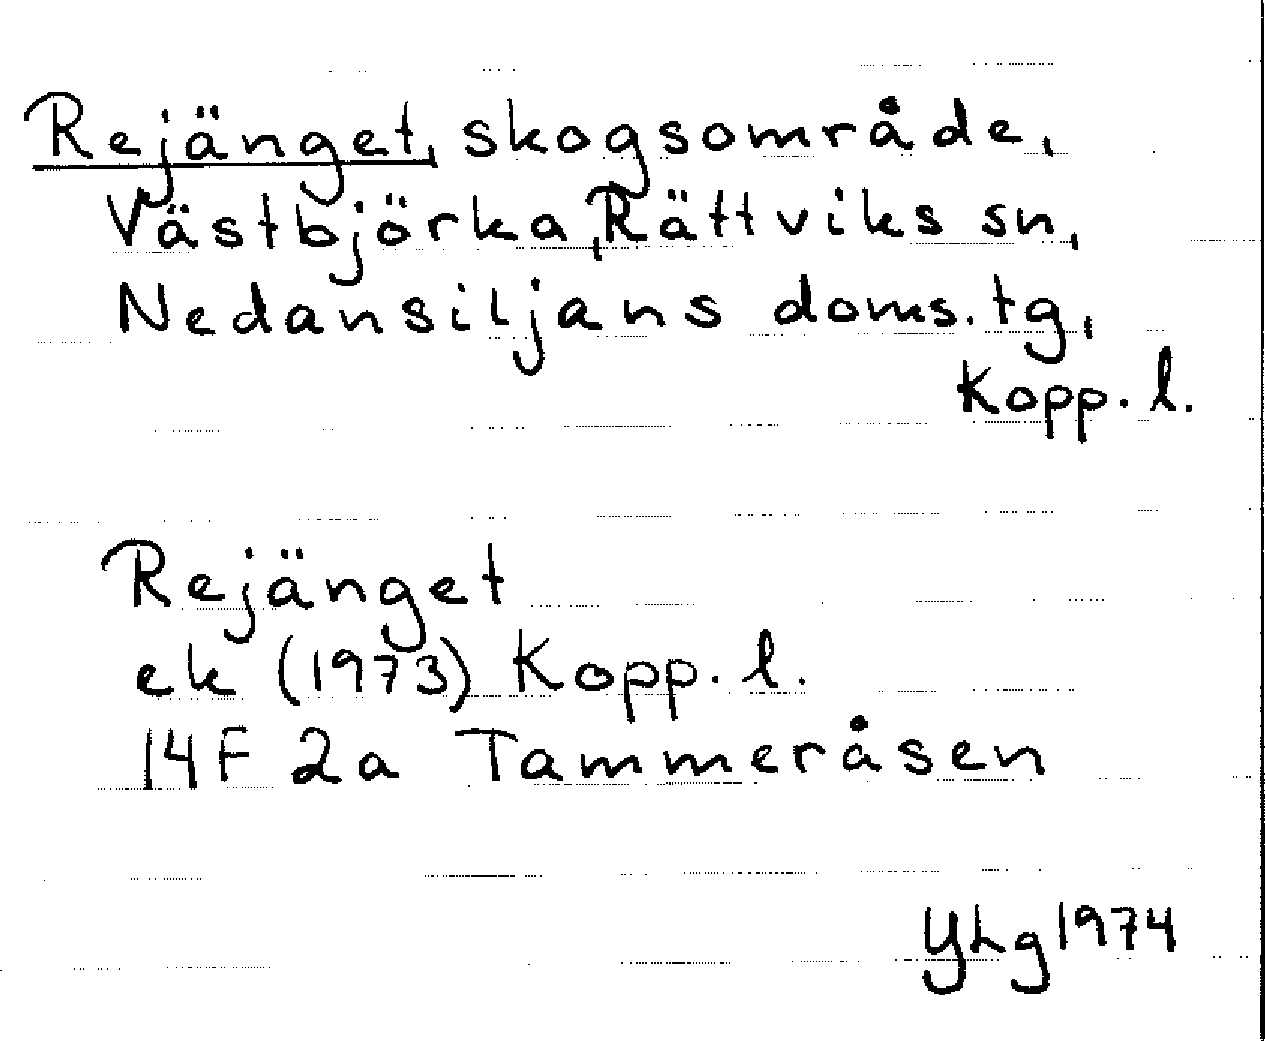 Rejänget, skogsområde,
Västbjörka, Rättviks sn,
Nedansiljans doms.tg,
Kopp. l.
Rejänget
ek (1973) Kopp. l.
14F 2a Tammeråsen
YLg 1974